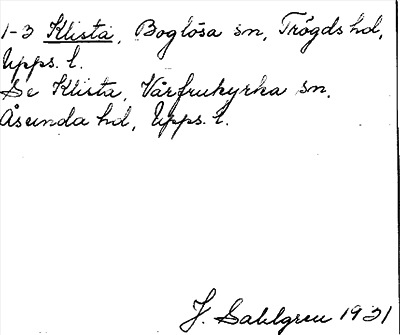 1-3 Klista, Boglösa sn, Trögds hd,
Upps. l.
Se Klista, Vårfrukyrka sn,
Åsunda hd, Upps. l.
J. Sahlgren 1931